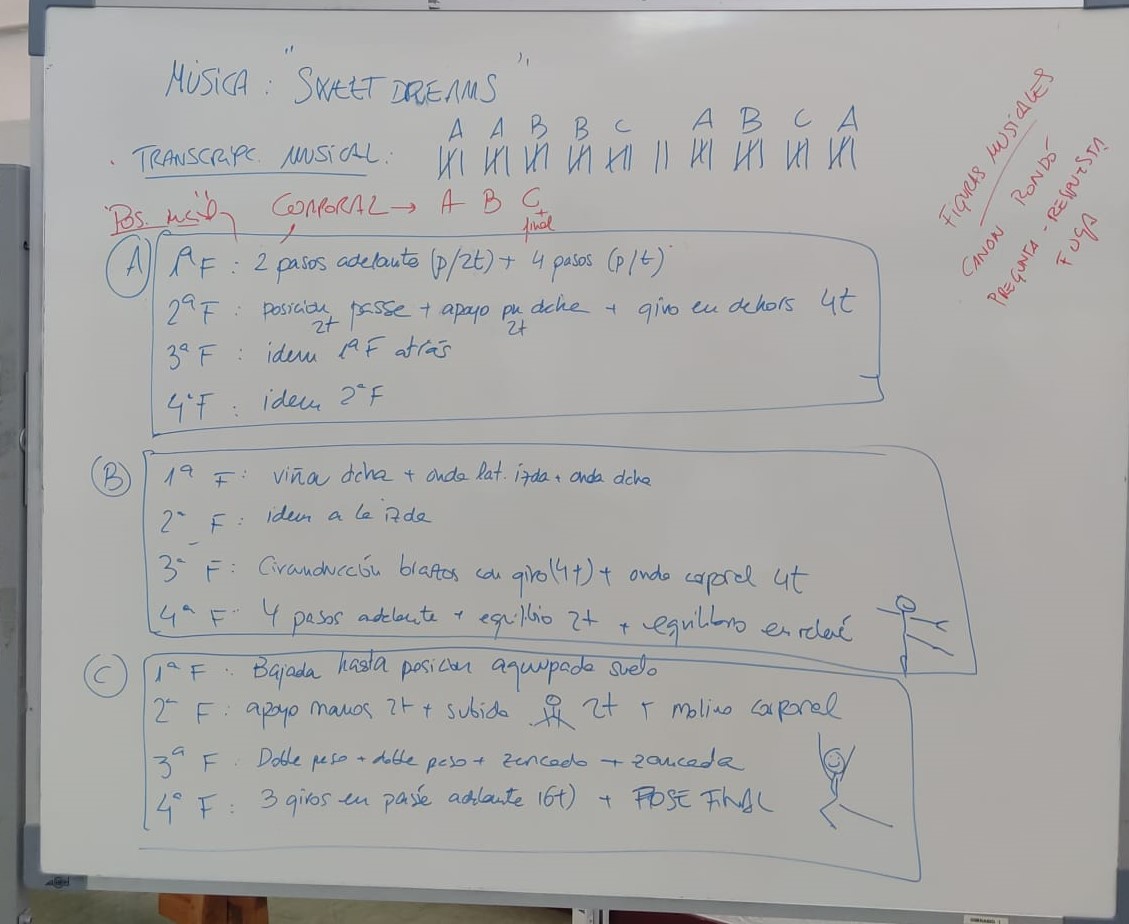 MÚSICA: "SWEET DREAMS"
A A B B C A B C A
TRANSCRIPC. MUSICAL:
CORPORAL → A B C
+ final
FIGURAS MUSICALES
CANON RONDÓ
PREGUNTA - RESPUESTA
FUGA
A
1ª F: 2 pasos adelante (p/2t) + 4 pasos (p/t)
2ª F: posición passe + apoyo dcha + giro en dehors 4t
2t 2t
3ª F: idem 1ª F atrás
4ª F: idem 2ª F
B
1ª F: viña dcha + onda lat. izda + onda dcha
2ª F: idem a la izda
3ª F: Circunducción brazos con giro (4t) + onda corporal 4t
4ª F: 4 pasos adelante + equilibrio 2t + equilibrio en relevé
C
1ª F: Bajada hasta posición agrupada suelo
2ª F: apoyo manos 2t + subida 2t + molino corporal
3ª F: Doble peso + doble peso + zancada + zancada
4ª F: 3 giros en passé adelante (6t) + POSE FINAL